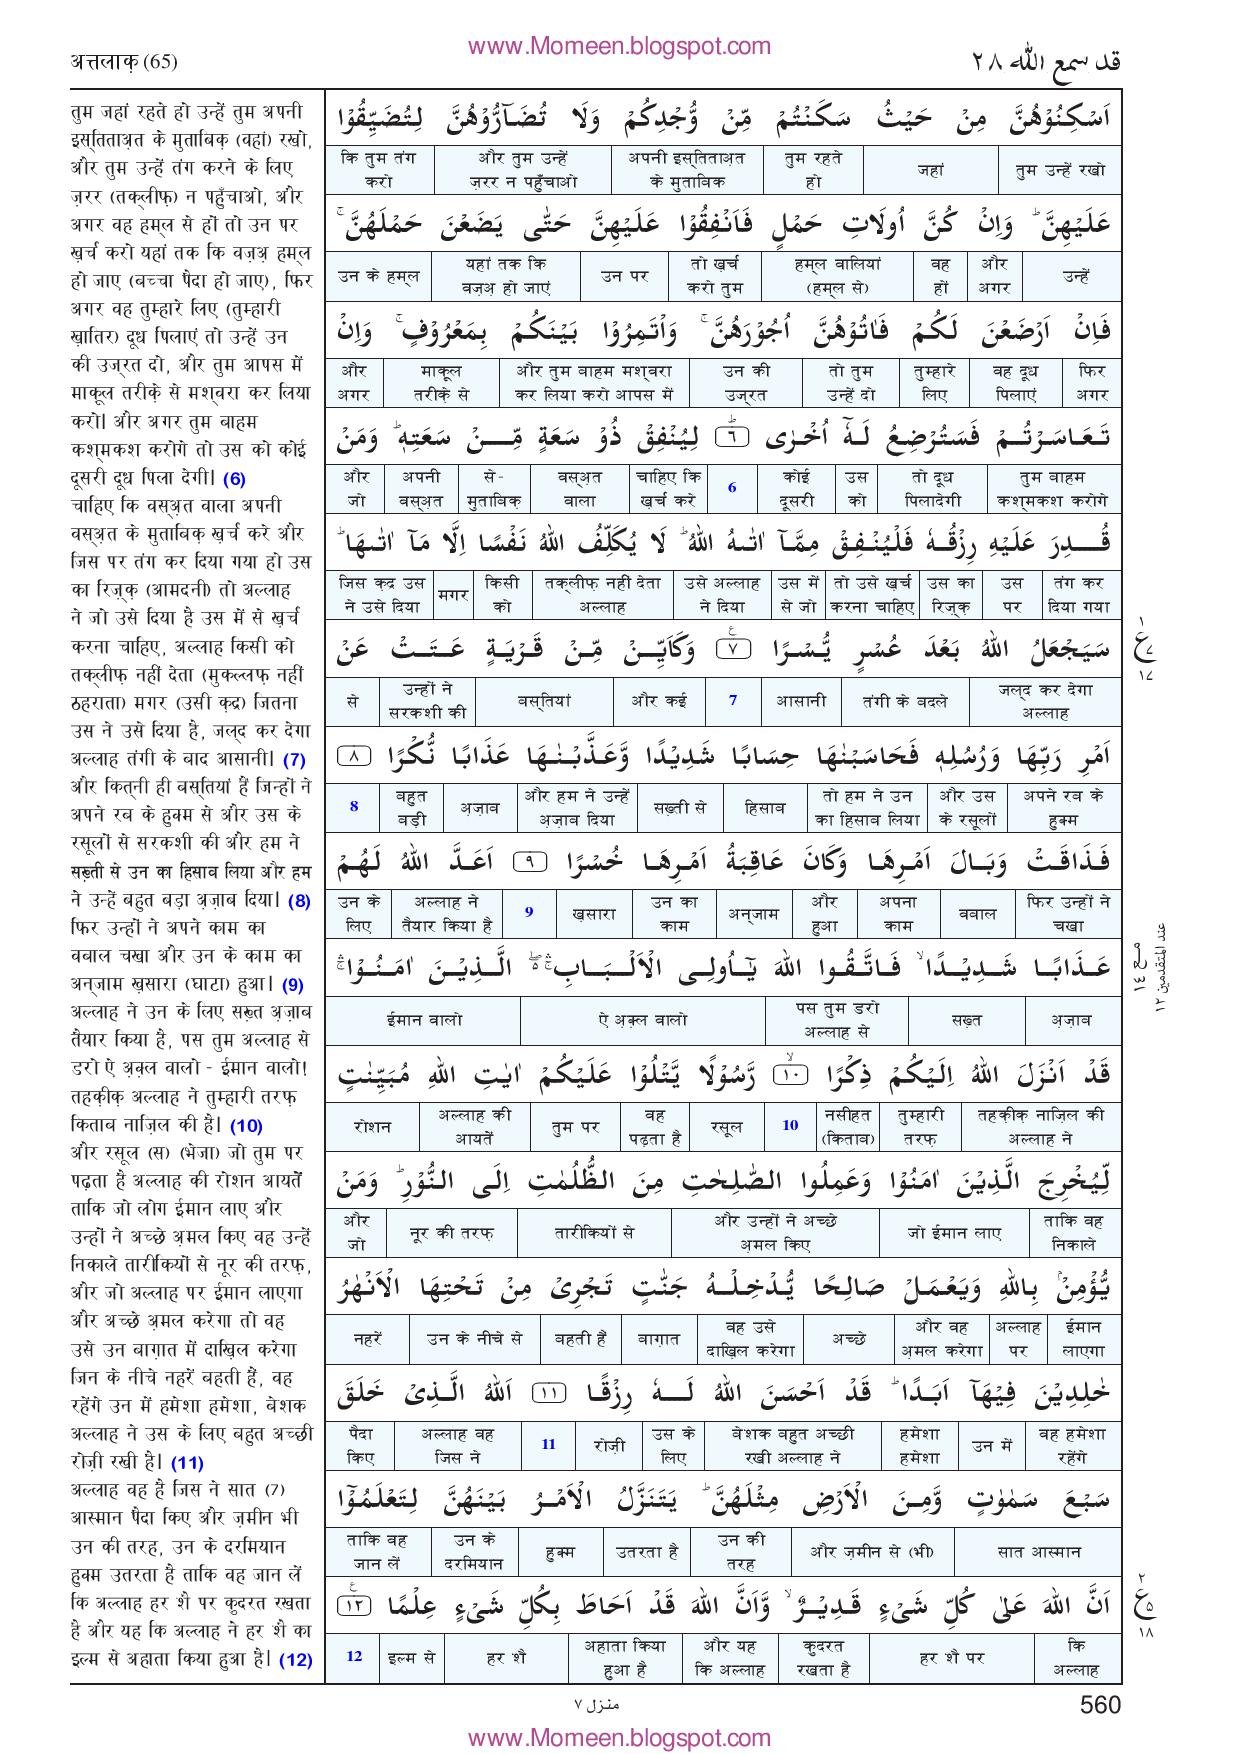 www.Momeen.blogspot.com
अत्तलाक़ (65)
قد سمع اللہ ٢٨
तुम जहां रहते हो उन्हें तुम अपनी
इस्तिताअ़त के मुताबिक़ (वहां) रखो,
और तुम उन्हें तंग करने के लिए
ज़रर (तक्लीफ़) न पहुँचाओ, और
अगर वह हम्ल से हों तो उन पर
ख़र्च करो यहां तक कि वज़अ़ हम्ल
हो जाए (बच्चा पैदा हो जाए), फिर
अगर वह तुम्हारे लिए (तुम्हारी
ख़ातिर) दूध पिलाएं तो उन्हें उन
की उज्रत दो, और तुम आपस में
माकूल तरीक़े से मश्वरा कर लिया
करो। और अगर तुम बाहम
कशमकश करोगे तो उस को कोई
दूसरी दूध पिला देगी। (6)
चाहिए कि वस्अ़त वाला अपनी
वस्अ़त के मुताबिक़ ख़र्च करे और
जिस पर तंग कर दिया गया हो उस
का रिज़्क़ (आमदनी) तो अल्लाह
ने जो उसे दिया है उस में से ख़र्च
करना चाहिए, अल्लाह किसी को
तक्लीफ़ नहीं देता (मुकल्लफ़ नहीं
ठहराता) मगर (उसी क़द्र) जितना
उस ने उसे दिया है, जल्द कर देगा
अल्लाह तंगी के बाद आसानी। (7)
और कित्नी ही बस्तियां हैं जिन्हों ने
अपने रब के हुक्म से और उस के
रसूलों से सरकशी की और हम ने
सख़्ती से उन का हिसाब लिया और हम
ने उन्हें बहुत बड़ा अ़ज़ाब दिया। (8)
फिर उन्हों ने अपने काम का
वबाल चखा और उन के काम का
अन्जाम ख़सारा (घाटा) हुआ। (9)
अल्लाह ने उन के लिए सख़्त अ़ज़ाब
तैयार किया है, पस तुम अल्लाह से
डरो ऐ अ़क़्ल वालो - ईमान वालो!
तहक़ीक़ अल्लाह ने तुम्हारी तरफ़
किताब नाज़िल की है। (10)
और रसूल (स) (भेजा) जो तुम पर
पढ़ता है अल्लाह की रोशन आयतें
ताकि जो लोग ईमान लाए और
उन्हों ने अच्छे अ़मल किए वह उन्हें
निकाले तारीकियों से नूर की तरफ़,
और जो अल्लाह पर ईमान लाएगा
और अच्छे अ़मल करेगा तो वह
उसे उन बाग़ात में दाख़िल करेगा
जिन के नीचे नहरें बहती हैं, वह
रहेंगे उन में हमेशा हमेशा, बेशक
अल्लाह ने उस के लिए बहुत अच्छी
रोज़ी रखी है। (11)
अल्लाह वह है जिस ने सात (7)
आस्मान पैदा किए और ज़मीन भी
उन की तरह, उन के दरमियान
हुक्म उतरता है ताकि वह जान लें
कि अल्लाह हर शै पर कुदरत रखता
है और यह कि अल्लाह ने हर शै का
इल्म से अहाता किया हुआ है। (12)
اَسْكِنُوْهُنَّ مِنْ حَيْثُ سَكَنْتُمْ مِّنْ وُّجْدِكُمْ وَلَا تُضَآرُّوْهُنَّ لِتُضَيِّقُوْا
तुम उन्हें रखो जहां तुम रहते हो अपनी इस्तिताअ़त के मुताबिक़ और तुम उन्हें ज़रर न पहुँचाओ कि तुम तंग करो
عَلَيْهِنَّ ؕ وَاِنْ كُنَّ اُولَاتِ حَمْلٍ فَاَنْفِقُوْا عَلَيْهِنَّ حَتّٰى يَضَعْنَ حَمْلَهُنَّ ۚ
उन्हें और अगर वह हों हम्ल वालियां (हम्ल से) तो ख़र्च करो तुम उन पर यहां तक कि वज़अ़ हो जाएं उन के हम्ल
فَاِنْ اَرْضَعْنَ لَكُمْ فَاٰتُوْهُنَّ اُجُوْرَهُنَّ ۚ وَاْتَمِرُوْا بَيْنَكُمْ بِمَعْرُوْفٍ ۚ وَاِنْ
फिर अगर वह दूध पिलाएं तुम्हारे लिए तो तुम उन्हें दो उन की उज्रत और तुम बाहम मश्वरा कर लिया करो आपस में माकूल तरीक़े से और अगर
تَعَاسَرْتُمْ فَسَتُرْضِعُ لَهٗٓ اُخْرٰى ؕ ٦ لِيُنْفِقْ ذُوْ سَعَةٍ مِّنْ سَعَتِهٖ ؕ وَمَنْ
तुम बाहम कशमकश करोगे तो दूध पिलादेगी उस को कोई दूसरी 6 चाहिए कि ख़र्च करे वस्अ़त वाला से- मुताबिक़ अपनी वस्अ़त और जो
قُدِرَ عَلَيْهِ رِزْقُهٗ فَلْيُنْفِقْ مِمَّآ اٰتٰىهُ اللّٰهُ ؕ لَا يُكَلِّفُ اللّٰهُ نَفْسًا اِلَّا مَآ اٰتٰىهَا ؕ
तंग कर दिया गया उस पर उस का रिज़्क़ तो उसे ख़र्च करना चाहिए उस में से जो उसे अल्लाह ने दिया तक्लीफ़ नहीं देता अल्लाह किसी को मगर जिस क़द्र उस ने उसे दिया
سَيَجْعَلُ اللّٰهُ بَعْدَ عُسْرٍ يُّسْرًا ٧ ع وَكَاَيِّنْ مِّنْ قَرْيَةٍ عَتَتْ عَنْ
जल्द कर देगा अल्लाह तंगी के बदले आसानी 7 और कई बस्तियां उन्हों ने सरकशी की से
١ ع ٧ ١٧
اَمْرِ رَبِّهَا وَرُسُلِهٖ فَحَاسَبْنٰهَا حِسَابًا شَدِيْدًا وَّعَذَّبْنٰهَا عَذَابًا نُّكْرًا ٨
अपने रब के हुक्म और उस के रसूलों तो हम ने उन का हिसाब लिया हिसाब सख़्ती से और हम ने उन्हें अ़ज़ाब दिया अ़ज़ाब बहुत बड़ी 8
فَذَاقَتْ وَبَالَ اَمْرِهَا وَكَانَ عَاقِبَةُ اَمْرِهَا خُسْرًا ٩ اَعَدَّ اللّٰهُ لَهُمْ
फिर उन्हों ने चखा वबाल अपना काम और हुआ अन्जाम उन का काम ख़सारा 9 अल्लाह ने तैयार किया है उन के लिए
عَذَابًا شَدِيْدًا ۙ فَاتَّقُوا اللّٰهَ يٰٓاُولِى الْاَلْبَابِ ۛ ۚ ۖ الَّذِيْنَ اٰمَنُوْا ۛ
अ़ज़ाब सख़्त पस तुम डरो अल्लाह से ऐ अ़क़्ल वालो ईमान वालो
مع ١٤ عند المتقدمين ١٢
قَدْ اَنْزَلَ اللّٰهُ اِلَيْكُمْ ذِكْرًا ۙ ١٠ رَّسُوْلًا يَّتْلُوْا عَلَيْكُمْ اٰيٰتِ اللّٰهِ مُبَيِّنٰتٍ
तहक़ीक़ नाज़िल की अल्लाह ने तुम्हारी तरफ़ नसीहत (किताब) 10 रसूल वह पढ़ता है तुम पर अल्लाह की आयतें रोशन
لِّيُخْرِجَ الَّذِيْنَ اٰمَنُوْا وَعَمِلُوا الصّٰلِحٰتِ مِنَ الظُّلُمٰتِ اِلَى النُّوْرِ ؕ وَمَنْ
ताकि वह निकाले जो ईमान लाए और उन्हों ने अच्छे अ़मल किए तारीकियों से नूर की तरफ़ और जो
يُّؤْمِنْۢ بِاللّٰهِ وَيَعْمَلْ صَالِحًا يُّدْخِلْهُ جَنّٰتٍ تَجْرِىْ مِنْ تَحْتِهَا الْاَنْهٰرُ
ईमान लाएगा अल्लाह पर और वह अ़मल करेगा अच्छे वह उसे दाख़िल करेगा बाग़ात बहती हैं उन के नीचे से नहरें
خٰلِدِيْنَ فِيْهَآ اَبَدًا ؕ قَدْ اَحْسَنَ اللّٰهُ لَهٗ رِزْقًا ١١ اَللّٰهُ الَّذِىْ خَلَقَ
वह हमेशा रहेंगे उन में हमेशा हमेशा बेशक बहुत अच्छी रखी अल्लाह ने उस के लिए रोज़ी 11 अल्लाह वह जिस ने पैदा किए
سَبْعَ سَمٰوٰتٍ وَّمِنَ الْاَرْضِ مِثْلَهُنَّ ؕ يَتَنَزَّلُ الْاَمْرُ بَيْنَهُنَّ لِتَعْلَمُوْٓا
सात आस्मान और ज़मीन से (भी) उन की तरह उतरता है हुक्म उन के दरमियान ताकि वह जान लें
اَنَّ اللّٰهَ عَلٰى كُلِّ شَىْءٍ قَدِيْرٌ ۙ وَّاَنَّ اللّٰهَ قَدْ اَحَاطَ بِكُلِّ شَىْءٍ عِلْمًا ١٢ ع
कि अल्लाह हर शै पर कुदरत रखता है और यह कि अल्लाह अहाता किया हुआ है हर शै इल्म से 12
٢ ع ٥ ١٨
منزل ٧
560
www.Momeen.blogspot.com